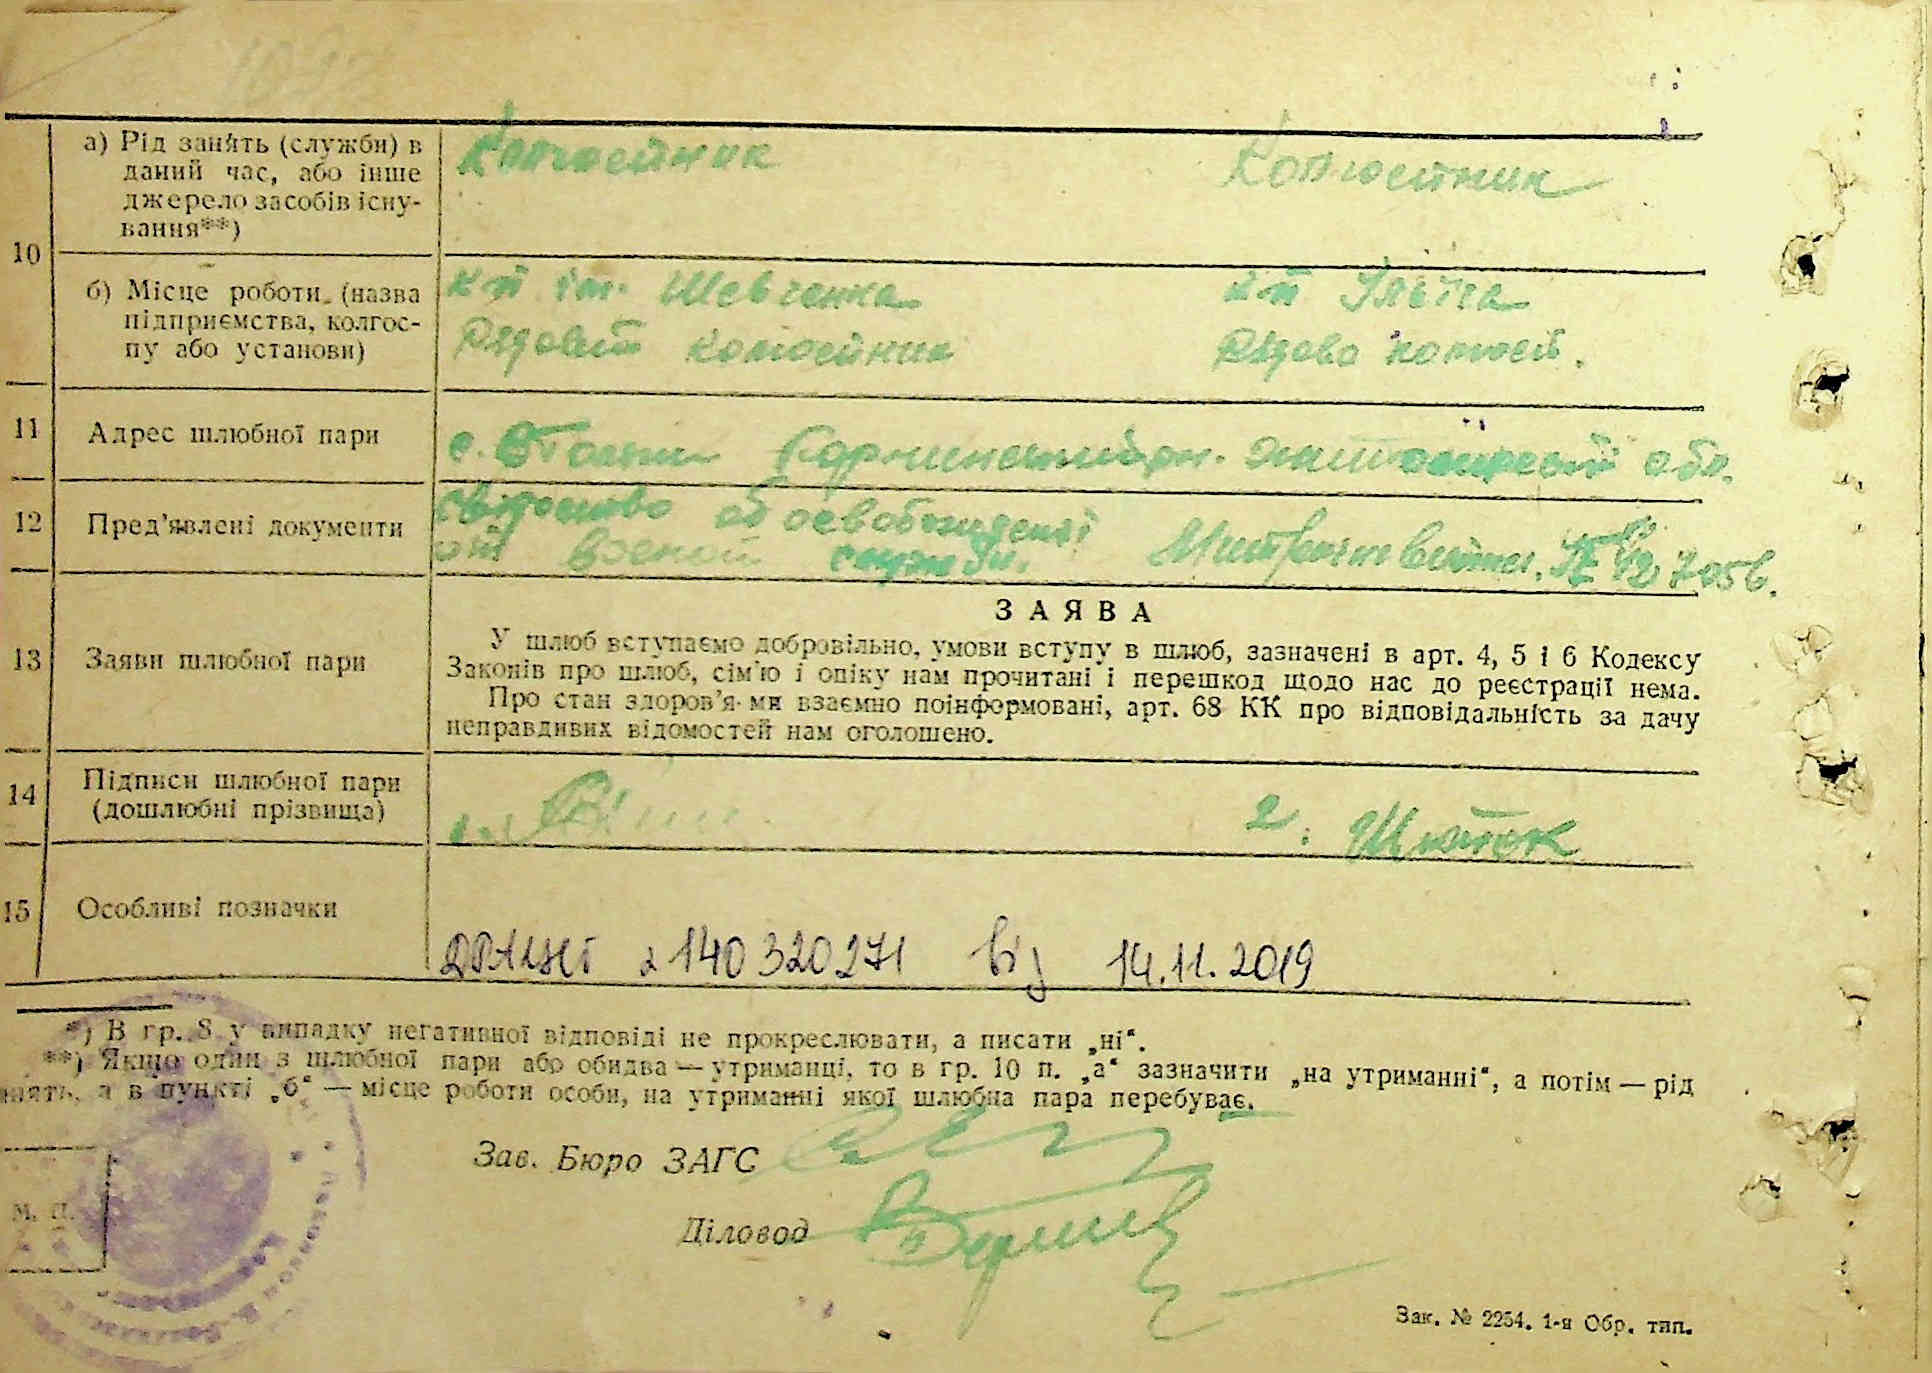 10
а) Рід занять (служби) в
даний час, або інше
джерело засобів існу-
вання**)
Колгоспник
Колгоспник
б) Місце роботи (назва
підприємства, колгос-
пу або установи)
к-п ім. Шевченка
Рядовий колгоспник
к-п Ілліча
Рядова колгосп.
11
Адрес шлюбної пари
обл.
12
Пред'явлені документи
об освобождені
от воєной служби.
13
Заяви шлюбної пари
ЗАЯВА
У шлюб вступаємо добровільно, умови вступу в шлюб, зазначені в арт. 4, 5 і 6 Кодексу
Законів про шлюб, сім'ю і опіку нам прочитані і перешкод щодо нас до реєстрації нема.
Про стан здоров'я ми взаємно поінформовані, арт. 68 КК про відповідальність за дачу
неправдивих відомостей нам оголошено.
14
Підписи шлюбної пари
(дошлюбні прізвища)
1.
2.
15
Особливі позначки
140320271 від 14.11.2019
*) В гр. 8 у випадку негативної відповіді не прокреслювати, а писати „ні“.
**) Якщо один з шлюбної пари або обидва — утриманці, то в гр. 10 п. „а“ зазначити „на утриманні“, а потім — рід
нять, а в пункті „б“ — місце роботи особи, на утриманні якої шлюбна пара перебуває.
Зав. Бюро ЗАГС
М. П.
Діловод
Зак. № 2254. 1-я Обр. тип.